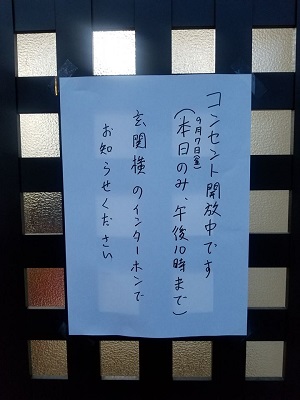 コンセント開放中です
9月7日(金)
(本日のみ、午後10時まで)
玄関横のインターホンで
お知らせください